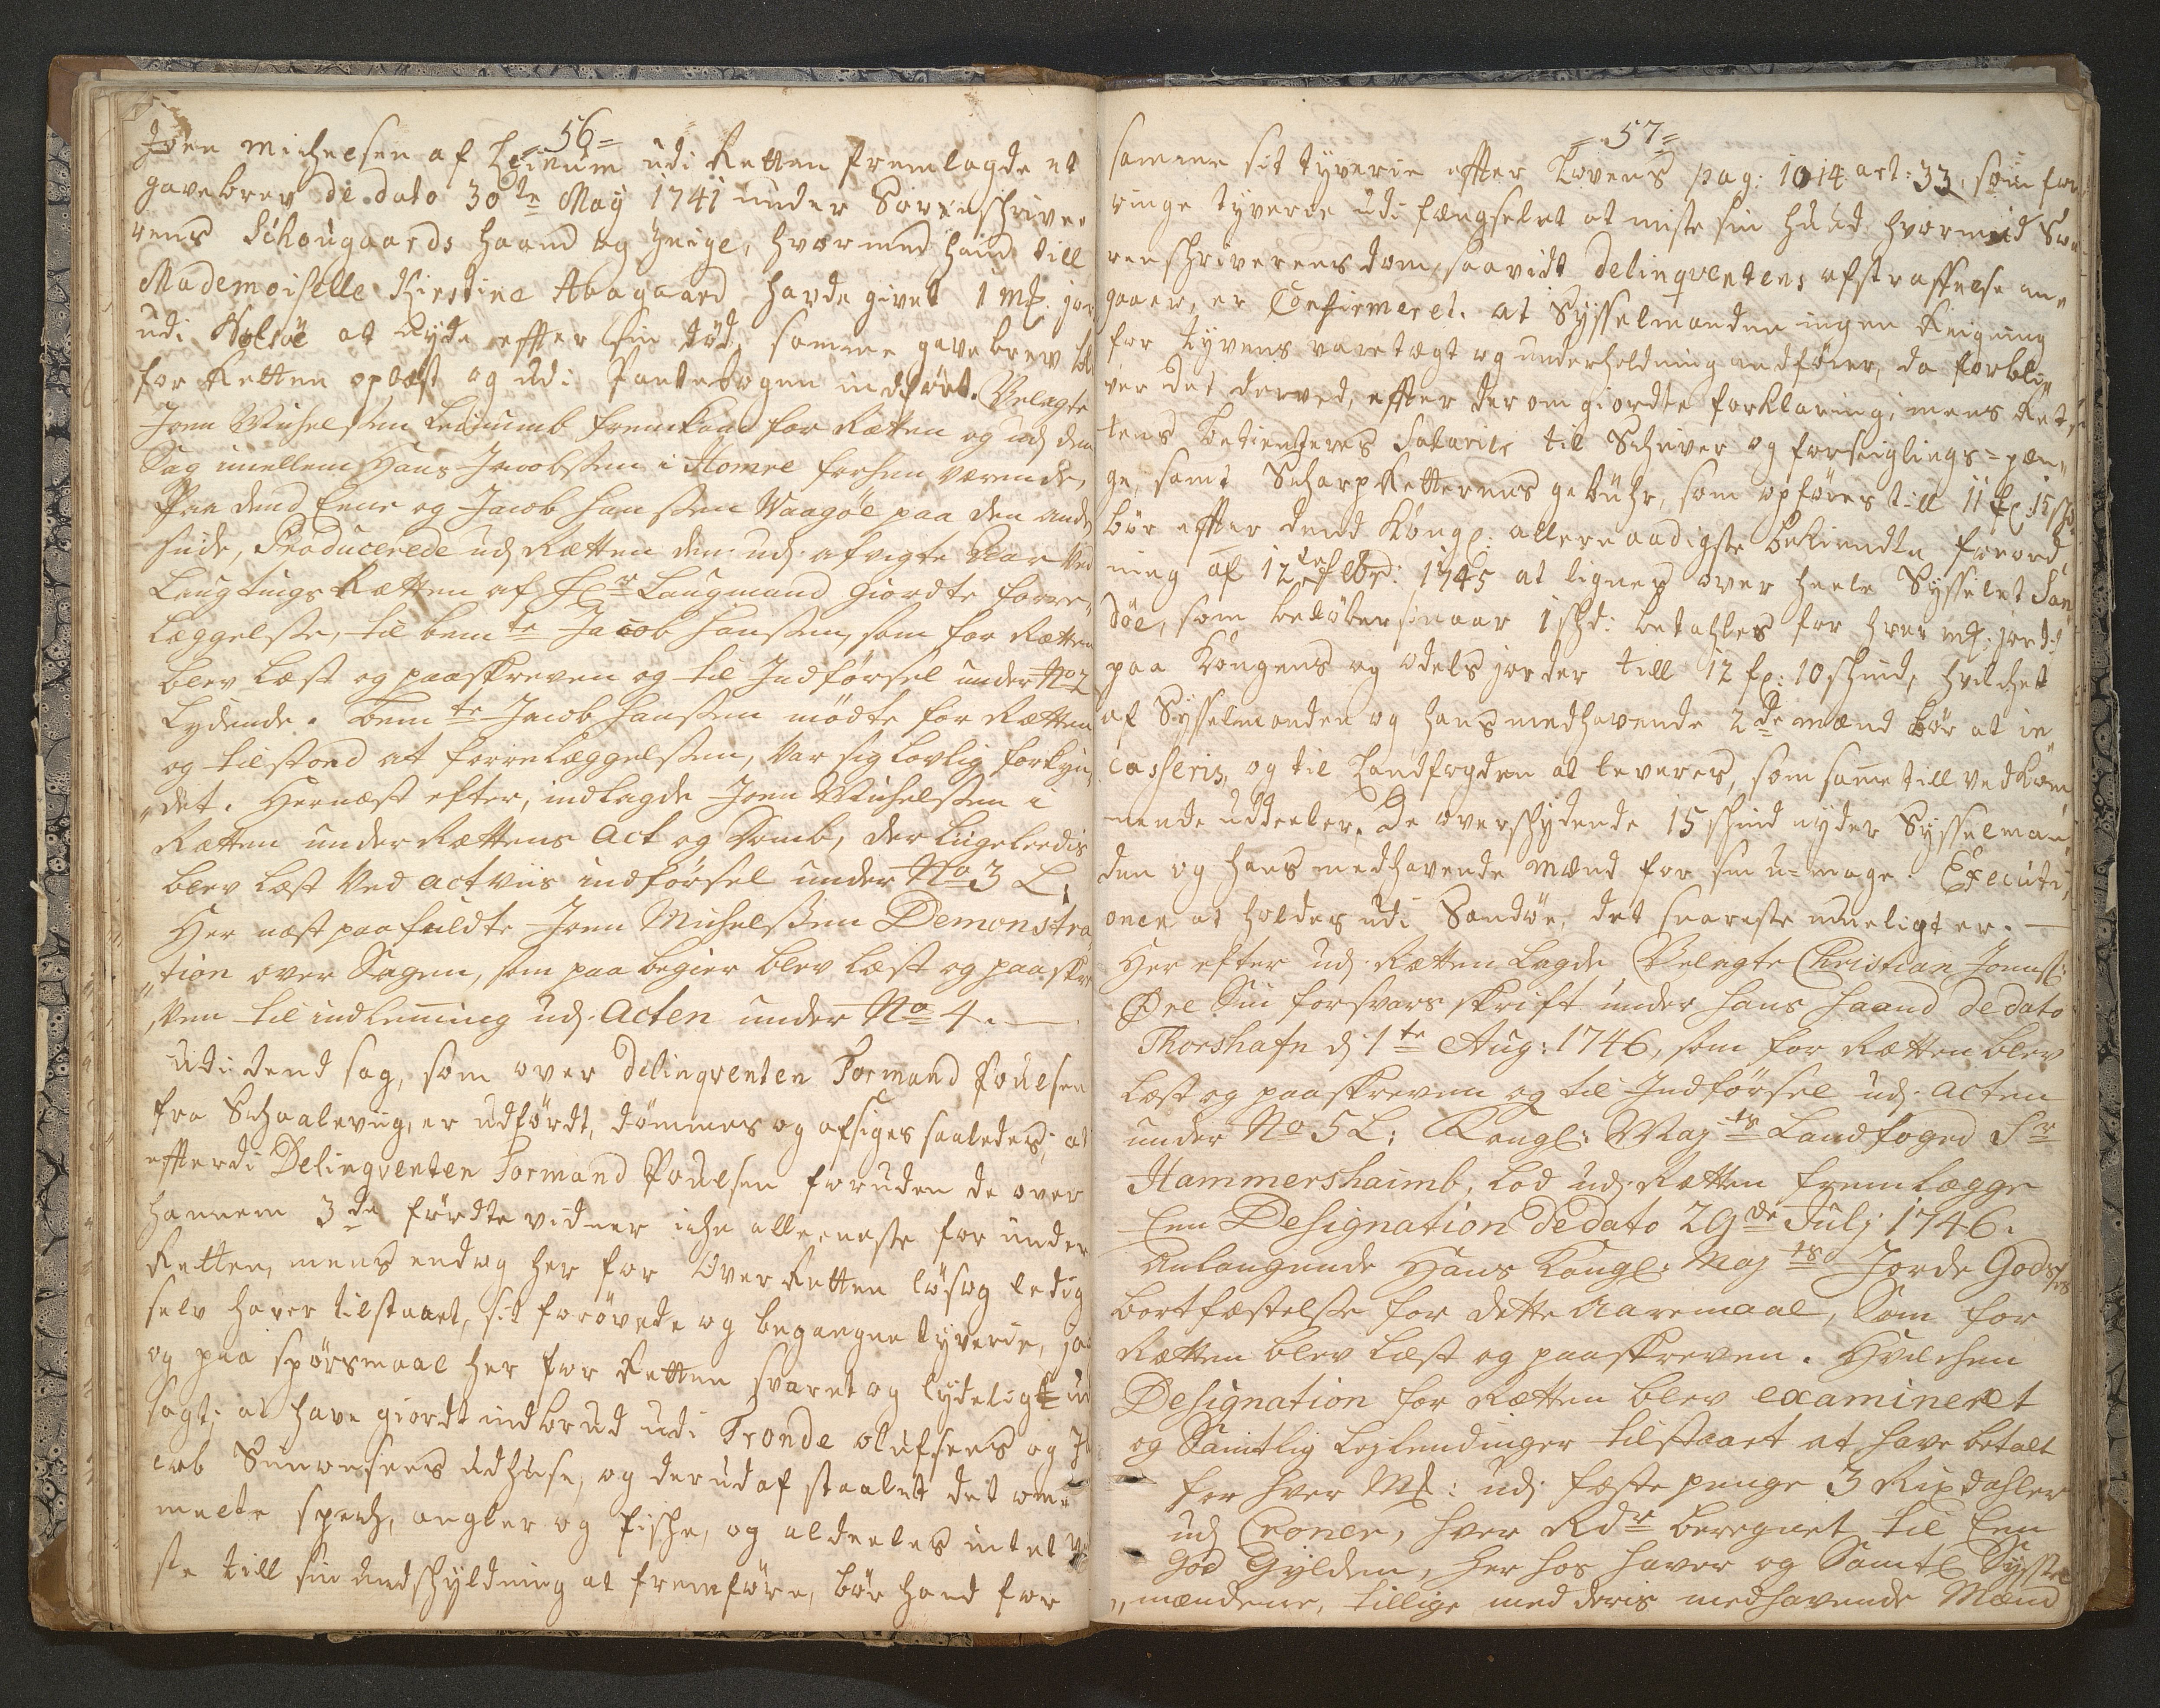 =56=
Joen Michelsen af Leinum udi Retten fremlagde et
gavebrev de dato 30te Maÿ 1741 under Sorenschrive,,
rens Schougaards haand og zeigl, hvormed hand till
Mademoiselle Kirstine Abagaard hafde givet 1 mk. jor
udi Nolsöe at nyde effter sin död, samme gavebrev ble
for Retten oplæst og udi Pantebogen indfört. Velagte
Joen Michelssen Leinumb fremkom for Rætten og udj den
Sag imellem Hans Jacobssen i Homre forhen værende,
Paa dend Eene og Jacob Hanssen Waagöe paa den anden
siide, Producerede udj Rætten den udj afvigte Aar ved
Laugtings Rætten af Hr Laugmand giordte forre,,
Læggelsse, til bemte Jacob Hanssen, som for Rætten
blev Læst og paaskreven og til Indförsel under No 2
Lydende. bemte Jacob Hanssen mödte for Rætten
og tilstoed att forrelæggelssen, var sig lovlig forkyn,,
,,det. Hernæst efter, indlagde Joen Michelssen i
Rætten under Rættens Act og Domb, der liigeledis
blev Læst Ved actviis indförsel under No 3 L:
Her næst paafuldte Joen Michelssen Demonstra,,
,,tion over Sagen, som paa begier blev Læst og paaskre
,,ven til indlemming udj Acten under No 4.
Udi dend sag, som over Delinqventen Pormand Poulsen
fra Schaalevüg, er udfördt, dömmes og afsiges saaledes, at
efterdi Delinqventen Pormand Poulsen foruden de over
hannem 3de fördte vidner iche alleeneste for under
Retten, mens endog her for Over Retten lös og ledig
selv haver tilstaaet, sit forövede og begangne tyverie, ja
og paa spörsmaal her for Retten svaret og lydeligt ud
sagt, at have giordt indbrud udi Tronde Olufsens og Ja
cob Simonsens udhuse, og der udaf staalet det om,,
melte spech, angler og fische, og aldeeles intet vi
ste till sin undschyldning at fremföre, bör hand for
=57=
samme sit tyverie effter Lovens pag: 1014 art: 33, som for
ringe tyverie udi fængselet at miste sin hud. hvormed Sor
renschriverens dom, saavidt delinqventens afstraffelse an,,
gaaer, er Confirmeret. at Sysselmanden ingen Reigning
for tyvens varetægt og underholdning indförer, da forbli,,
ver det derved, effter der om giordte forklaring; mens Ret,,
tens betienteres Salarie til Schriver og forseiglings=pen,,
ge, samt Scharp Retterens gebühr, som opföres till 11 fl: 15 sk
bör effter dend Kongl: allernaadigste bekiendte forord,,
ning af 12te Febr: 1745 at lignes over heele Sysselet San,,
döe, som belöber sin aar 1 schd: betahles for hver mk. jord
paa Kongens og odels jorder till 12 fl: 10 schind, hvilchet
af Sysselmanden og hans medhavende 2de mænd bör at in,,
casseris, og til Landfogden at leveres, som same till vedkom,,
mende uddeeler. De overschydende 15 schind nyder Sysselman,,
den og hans medhavende mænd for sin u=mage. Executi,,
onen at holdes udi Sandöe, det snareste mueligt er.
Her efter udj Rætten lagde Velagte Christian Jonss:
Öre Sin forsvars skrift under hans Haand de dato
Thorshafn d: 1te Aug: 1746, som for Rætten blev
læst og paaskreven og til Indförsel udj acten
under No 5 L: Kongl: Maj ts Landfoged Sr
Hammershaimb, lod udj Rætten fremlægge
Een Designation de dato 29de Julj 1746.
Anlangende Hans Kongl: Maj ts Jorde Godses
bortfæstelsse for dette Aaremaal, Som for
Rætten blev Læst og paaskreven. Hvilchen
Designation for Rætten blev examineret
og Samtlig Leÿlendinger tilstaaet at have betalt
for hver Mk: udj fæste penge 3 Rixdahler
udj Croner, hver Rdr beregnet til Een
God Gylden, her hos haver og Samtl Syssel
,,mændene, tillige med deris medhavende Mænd